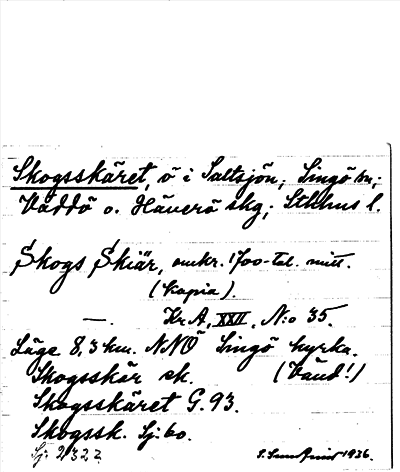 Skogsskäret, ö i Saltsjön, Singö sn;
Väddö o. Häverö skg; Sthlms l.
Skogs Skiär, omkr. 1700-tal. mitt.
(kopia).
—. Kr A, XXII. N:o 35.
Läge 8,3 km. NNÖ Singö kyrka.
Skogsskär ek. (Vänd!)
Skogsskäret G. 93.
Skogssk. Sj. 60.
Sj. 2322 1936.